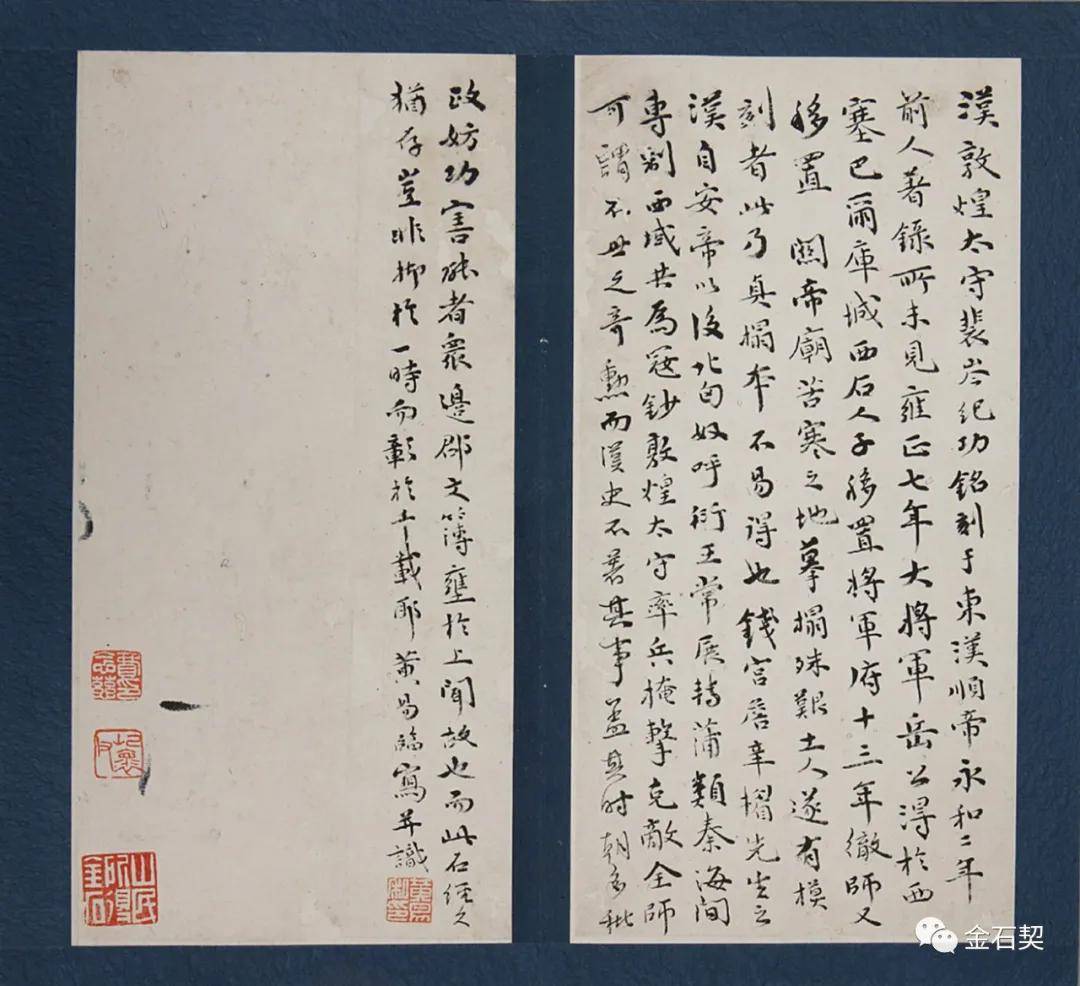 漢敦煌太守裴岑紀功銘刻于東漢順帝永和二年
前人著錄所未見雍正七年大將軍岳公得於西
塞巴爾庫城西石人子移置將軍府十三年徹師又
移置 關帝廟苦寒之地摹搨殊艱土人遂有模
刻者此乃真搨本不易得也錢宮詹辛楣先生云
漢自安帝以後北匈奴呼衍王常展轉蒲類秦海間
專制西域共為寇鈔敦煌太守率兵掩擊克敵全師
可謂不世之奇勲而漢史不著其事蓋其時朝多秕
政妨功害能者衆邊郡文簿壅於上聞故也而此石經久
猶存豈非抑於一時而彰於千載耶 黃易臨寫并識
黃易
金石契